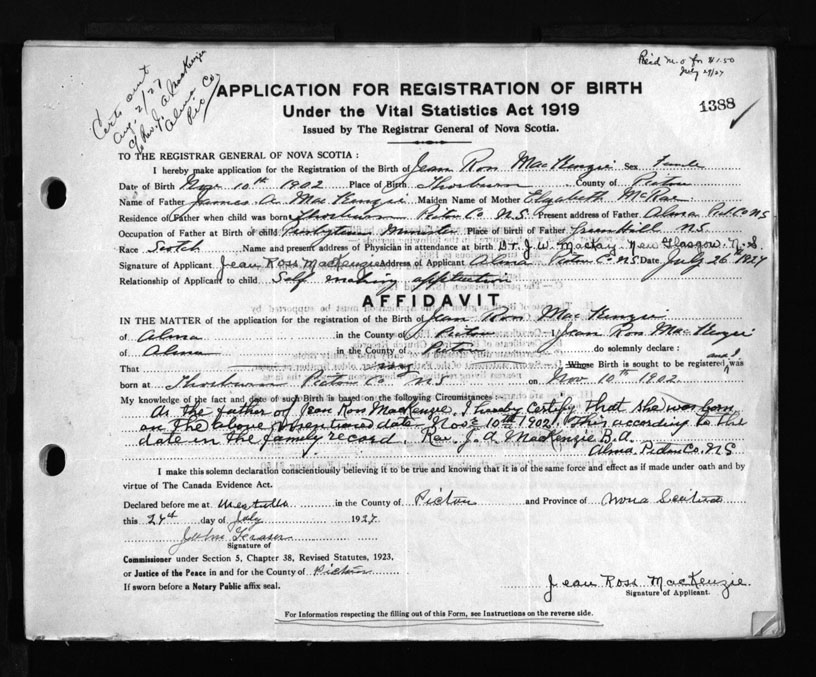 Certs sent
Aug. 2/27
J. A. MacKenzie
Alma
Pic Co.
Paid m.o for $1.50
July 29/27
1388
APPLICATION FOR REGISTRATION OF BIRTH
Under the Vital Statistics Act 1919
Issued by The Registrar General of Nova Scotia.
TO THE REGISTRAR GENERAL OF NOVA SCOTIA :
I hereby make application for the Registration of the Birth of Jean Ross MacKenzie Sex Female
Date of Birth Nov. 10th 1902 Place of Birth Thorburn County of Pictou
Name of Father James A. MacKenzie Maiden Name of Mother Elizabeth McRae
Residence of Father when child was born Thorburn Pictou Co N.S. Present address of Father Alma Pict. Co N S
Occupation of Father at Birth of child Presbyterian Minister Place of birth of Father Green Hill N.S.
Race Scotch Name and present address of Physician in attendance at birth Dr. J. W. MacKay New Glasgow N.S.
Signature of Applicant Jean Ross MacKenzie Address of Applicant Alma Pictou Co N S Date July 26th 1927
Relationship of Applicant to child Self making application
AFFIDAVIT
IN THE MATTER of the application for the registration of the Birth of Jean Ross MacKenzie
of Alma in the County of Pictou I Jean Ross MacKenzie
of Alma in the County of Pictou do solemnly declare :
That my Whose Birth is sought to be registered, and I was
born at Thorburn Pictou Co N S on Nov. 10th 1902
My knowledge of the fact and date of such Birth is based on the following Circumstances
As the father of Jean Ross MacKenzie, I hereby certify that she was born
on the above mentioned date Nov. 10th 1902. This according to the
date in the family record. Rev. J. A. MacKenzie B.A.
Alma, Pictou Co. N S
I make this solemn declaration conscientiously believing it to be true and knowing that it is of the same force and effect as if made under oath and by
virtue of The Canada Evidence Act.
Declared before me at Westville in the County of Pictou and Province of Nova Scotia
this 27th day of July 1927.
John Fraser
Signature of
Commissioner under Section 5, Chapter 38, Revised Statutes, 1923,
or Justice of the Peace in and for the County of Pictou
If sworn before a Notary Public affix seal.
Jean Ross MacKenzie.
Signature of Applicant.
For Information respecting the filling out of this Form, see Instructions on the reverse side.